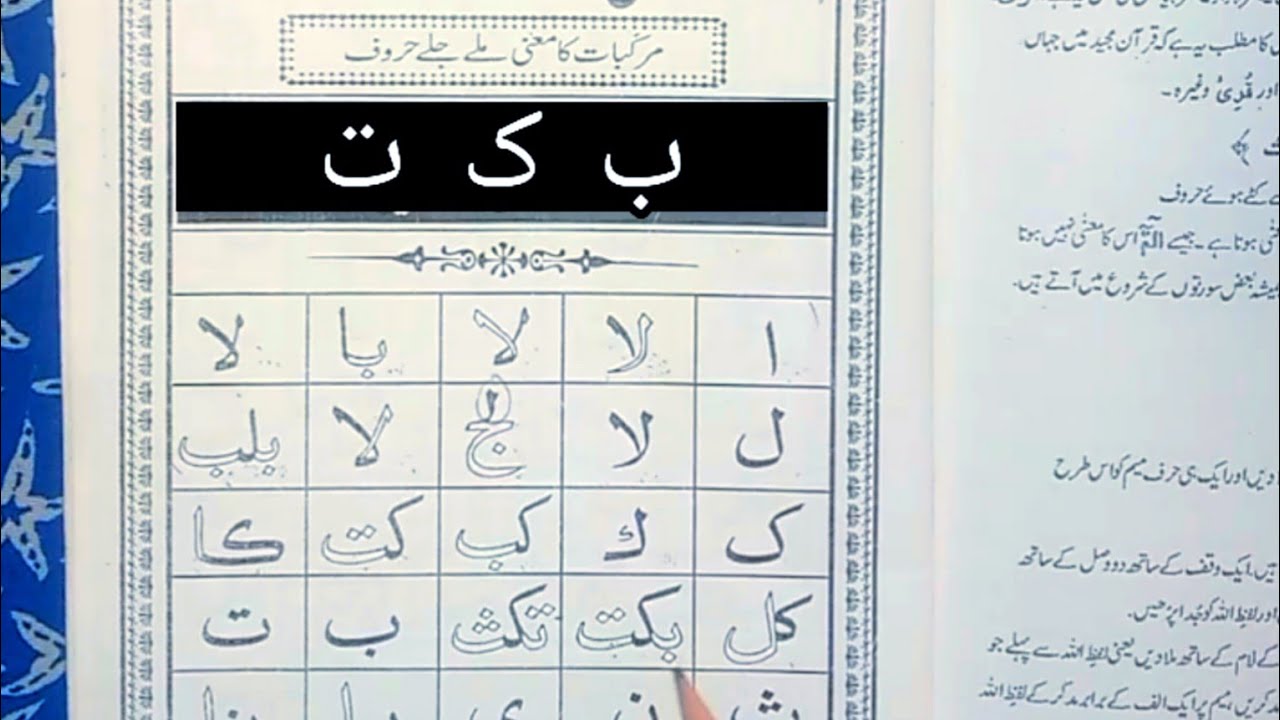 مرکبات کا معنیٰ ملے جلے حروف
ب ک ت
ا لا لا با لا
ل لا لج لا بلب
ک ك کب کت کا
کل بکت تکث ب ت
کا مطلب یہ ہے کہ قرآن مجید میں جہاں
وغیرہ۔
کٹے ہوئے حروف
ہوتا ہے۔ جیسے الٓمّٓ اس کا معنٰی نہیں ہوتا
بعض سورتوں کے شروع میں آتے ہیں۔
دیں اور ایک ہی حرف میم کو اس طرح
ہیں۔ ایک وقف کے ساتھ دو وصل کے ساتھ
اور لفظ اللہ کو جدا پڑھیں۔
کے لام کے ساتھ ملا دیں یعنی لفظ اللہ سے پہلے جو
کریں، میم پر ایک الف کے برابر مد کر کے لفظ اللہ